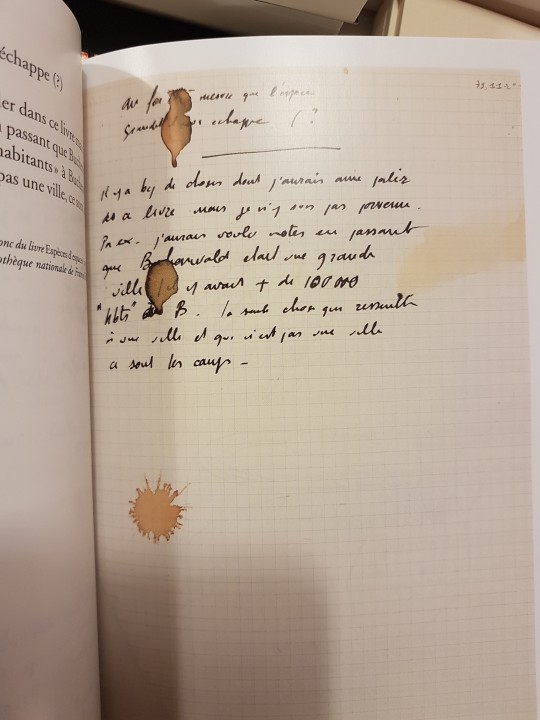 échappe (?)
ler dans ce livre
passant que
habitants » à
pas une ville, ce
du livre Espèces d'
nationale de
71,112
au mesure que l'espace
échappe ( ?
Il y a bcp de choses dont j'aurais aimé parler
ds ce livre mais je n'y suis pas parvenu.
Par ex. j'aurais voulu noter en passant
que B henwald était une grande
ville y avait + de 100000
"hbts" à B. la seule chose qui ressemble
à une ville et qui n'est pas une ville
ce sont les camps -